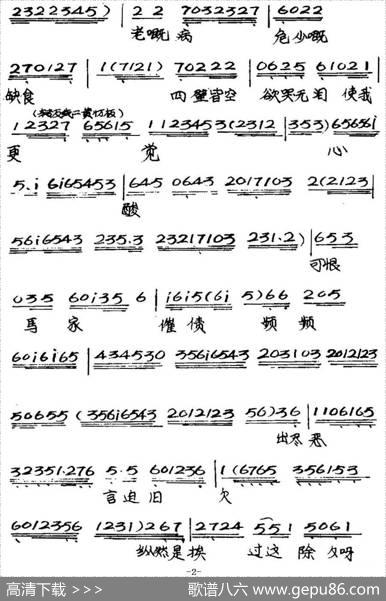 2322345) | 2 2 7032327 | 6022
老嘅 病 危少嘅
270127 | 1(7121) 70222 | 0625 61021 |
缺食 四壁皆空 欲哭无泪 使我
12327 65615 | 1123453(2312 | 353)65656i
更 觉 心
5.i 6i65453 | 645 0643 2017103 2(2123 |
酸
56i6543 235.3 23217103 231.2) | 653
可恨
035 60i35 6 | i6i5(6i 5)66 205
马家 催债 频频
60i6i65 | 434530 356i6543 203103 2012123
50655 (356i6543 2012123 56)36 | 1106165
出尽恶
32351.276 5.5 601236 | 1(6765 356153
言迫旧 欠
6012356 1231)267 | 2724 551 5061
纵然是挨 过这 除夕呀
-2-
高清下载 >>>
歌谱八六 @ www.gepu86.com